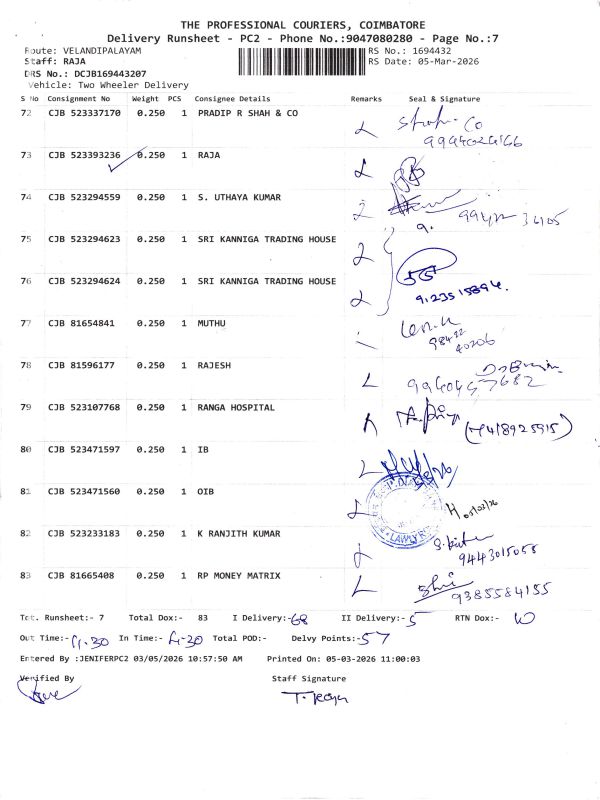 THE PROFESSIONAL COURIERS, COIMBATORE
Delivery Runsheet - PC2 - Phone No.:9047080280 - Page No.:7
Route: VELANDIPALAYAM RS No.: 1694432
Staff: RAJA RS Date: 05-Mar-2026
DRS No.: DCJB169443207
Vehicle: Two Wheeler Delivery
S No Consignment No Weight PCS Consignee Details Remarks Seal & Signature
72 CJB 523337170 0.250 1 PRADIP R SHAH & CO
73 CJB 523393236 0.250 1 RAJA
74 CJB 523294559 0.250 1 S. UTHAYA KUMAR
75 CJB 523294623 0.250 1 SRI KANNIGA TRADING HOUSE
76 CJB 523294624 0.250 1 SRI KANNIGA TRADING HOUSE
77 CJB 81654841 0.250 1 MUTHU
98422
40206
78 CJB 81596177 0.250 1 RAJESH
9940457682
79 CJB 523107768 0.250 1 RANGA HOSPITAL
80 CJB 523471597 0.250 1 IB
81 CJB 523471560 0.250 1 OIB
05/03/26
82 CJB 523233183 0.250 1 K RANJITH KUMAR
9443015055
83 CJB 81665408 0.250 1 RP MONEY MATRIX
9385584155
Tot. Runsheet:- 7 Total Dox:- 83 I Delivery:-68 II Delivery:-5 RTN Dox:- 10
Out Time:-11.30 In Time:-4-30 Total POD:- Delvy Points:-57
Entered By :JENIFERPC2 03/05/2026 10:57:50 AM Printed On: 05-03-2026 11:00:03
Verified By Staff Signature